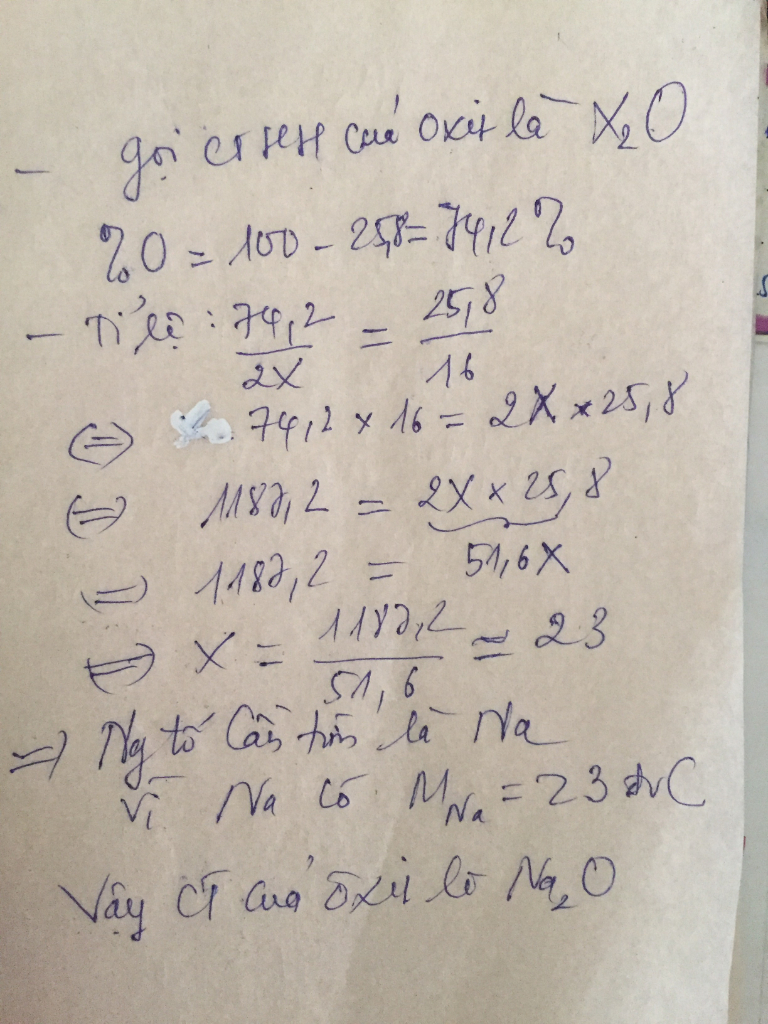 - gọi CTHH của oxit là X₂O
%O = 100 - 25,8 = 74,2%
- Tỉ lệ : 74,2/2X = 25,8/16
(=) 74,2 × 16 = 2X × 25,8
(=) 1187,2 = 2X × 25,8
(=) 1187,2 = 51,6X
<=> X = 1187,2/51,6 ≃ 23
=> Ng tố Cần tìm là Na
vì Na có M_Na = 23 đvC
Vậy CT của oxit là Na₂O